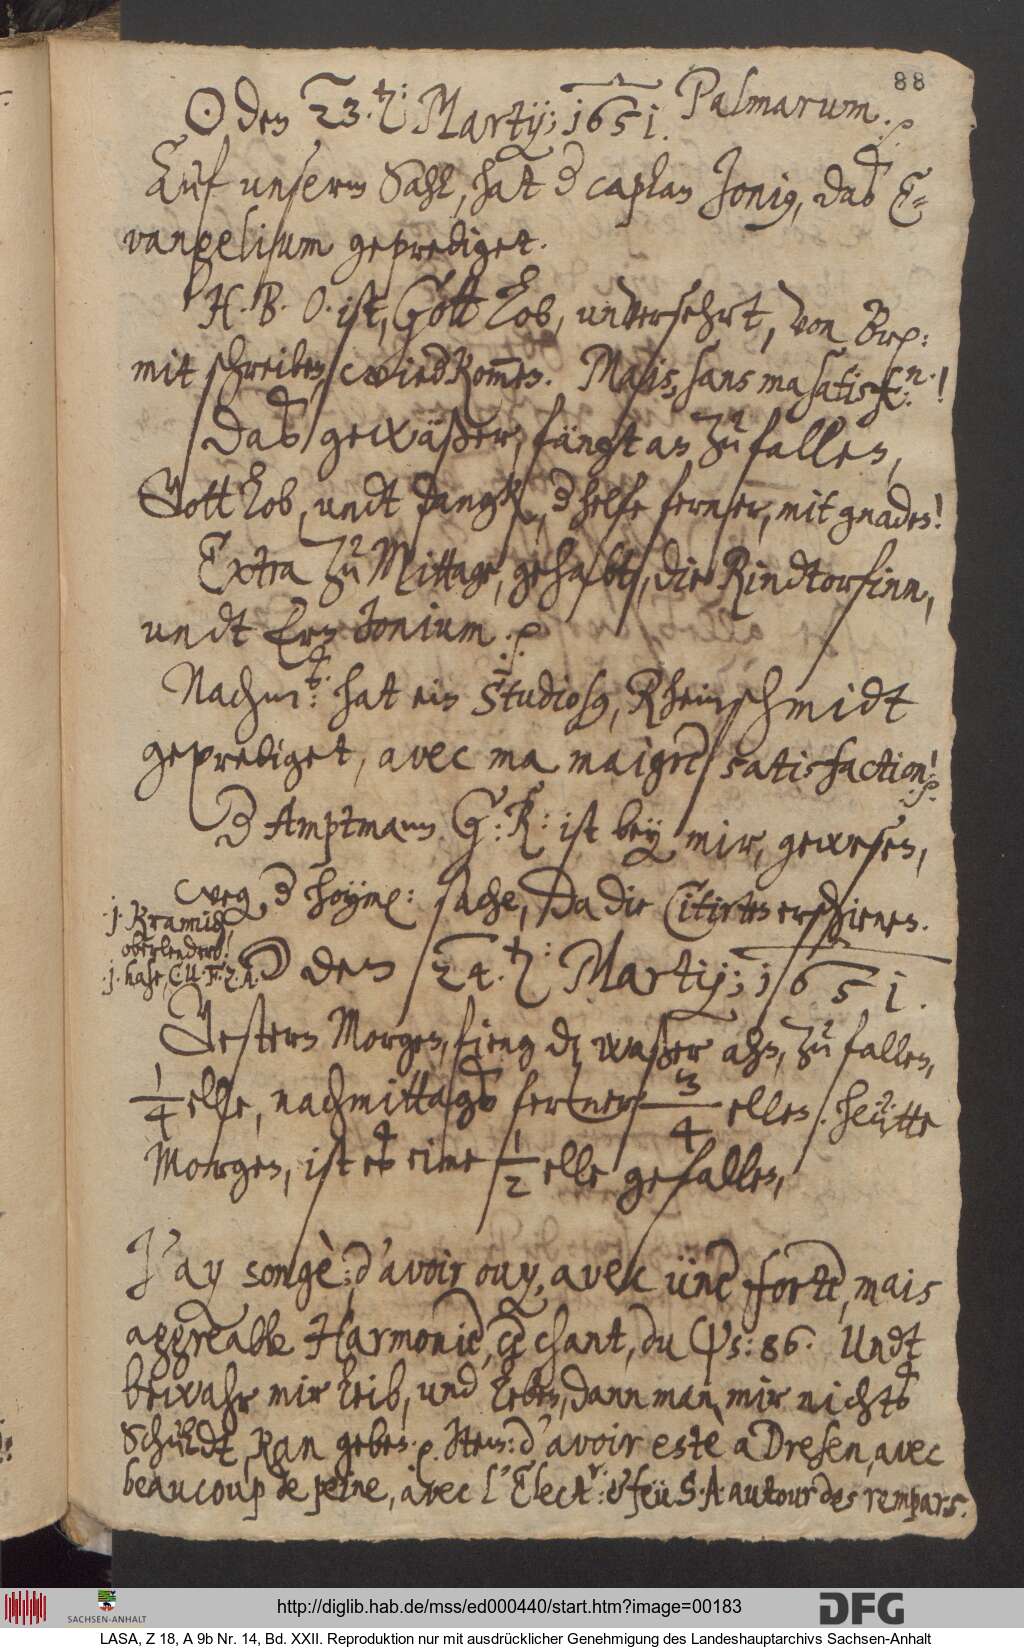 88
☉ den 23. t: Martij; 1651. Palmarum.
Auf unserm Sahl, hat d caplan Jonig, das E=
vangelium geprediget.
H. B. O. ist, Gott Lob, unversehrt, von Brp:
mit schreiben, wied kom̅en. Mais, sans ma satisf.n !
Das gewäßer, fängt an zu fallen,
Gott Lob, undt dangk, d helfe ferner, mit gnaden!
Extra zu Mittage, gehabt, die Rindtorfinn,
undt Ern Jonium. p
Nachmt: hat ein Studiosg, Rheinschmidt
geprediget, avec ma maigre satisfaction! p
d Amptmann G: K: ist bey mir, gewesen,
weg d hoymb: sache, Da die Citirten erschienen.
j. Kramich,
oberlender!
j. hase,
☽ den 24. t: Martij; 1651.
Gestern Morgen, fieng dz waßer ahn, zu fallen,
1/4 elle, nachmittags ferner 3/4 ellen. heütte
Morgen, ist es eine 1/2 elle gefallen,
J'ay songè, d'avoir ouy, avec üne forte, mais
aggreable Harmonie, ce chant, du Ps: 86. Undt
bewahr mir Leib, und Leben, dann man, mir nichts
Schuldt, kan geben. p Item: d'avoir este a Dresen, avec
beaucoup de peine, avec l'Elect.r: & feü S. A. autour des rempars.
http://diglib.hab.de/mss/ed000440/start.htm?image=00183
SACHSEN-ANHALT
DFG
LASA, Z 18, A 9b Nr. 14, Bd. XXII. Reproduktion nur mit ausdrücklicher Genehmigung des Landeshauptarchivs Sachsen-Anhalt